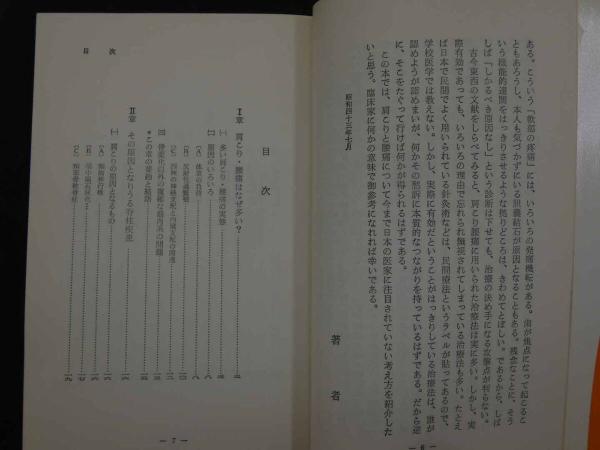 ある。こういう「軟部の疼痛」には、いろいろの発痛機転がある。歯が焦点になって起るこ
ともあろうし、本人も気づかずにいる胆嚢結石が原因となることもある。残念なことに、そう
いう機能的連関をはっきりさせるような拠りどころは、きわめてとぼしい。であるから、しば
しば「しかるべき原因なし」という診断は下せても、治療の決め手になる攻撃点が判らない。
古今東西の文献をしらべてみると、肩こりと腰痛に用いられた治療法は実に多い。しかし、実
際有効であっても、いろいろの理由で忘れられ無視されてしまっている治療法も多い。たとえ
ば日本で民間でよく用いられている針灸術などは、民間療法というラベルが貼ってあるので、
学校医学では教えない。しかし、実際に有効だということがはっきりしている治療法は、誰が
認めようが認めまいが、何かその愁訴に本質的なつながりを持っているはずである。だから逆
に、そこをたぐって行けば何かが得られるはずである。
この本では、肩こりと腰痛について今まで日本の医家に注目されていない考え方を紹介した
いと思う。臨床家に何かの意味で御参考になれば幸いである。
昭和四十三年七月
著者
— 6 —
目次
目次
I章 肩こり・腰痛はなぜ多い?
(一) 多い肩こり・腰痛の実態
(二) 原因のいろいろ
〔A〕 体重の負荷
〔B〕 反射性過緊張
〔C〕 四肢の神経支配と内臓支配の関連
(四) 骨変化以外の複雑な筋肉系の問題
*この章の要約と結語
II章 その原因となりうる脊柱疾患
(一) 肩こりの原因となるもの
〔A〕 頸筋痛行
〔C〕 頸部脊椎骨軟骨症
— 7 —